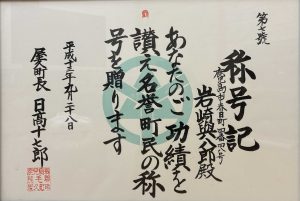 第七號
称号記
鹿児島市春日町四番四八号
岩崎與八郎殿
あなたのご功績を
讃え名誉町民の称
号を贈ります
平成十三年九月二八日
屋久町長 日髙十七郎